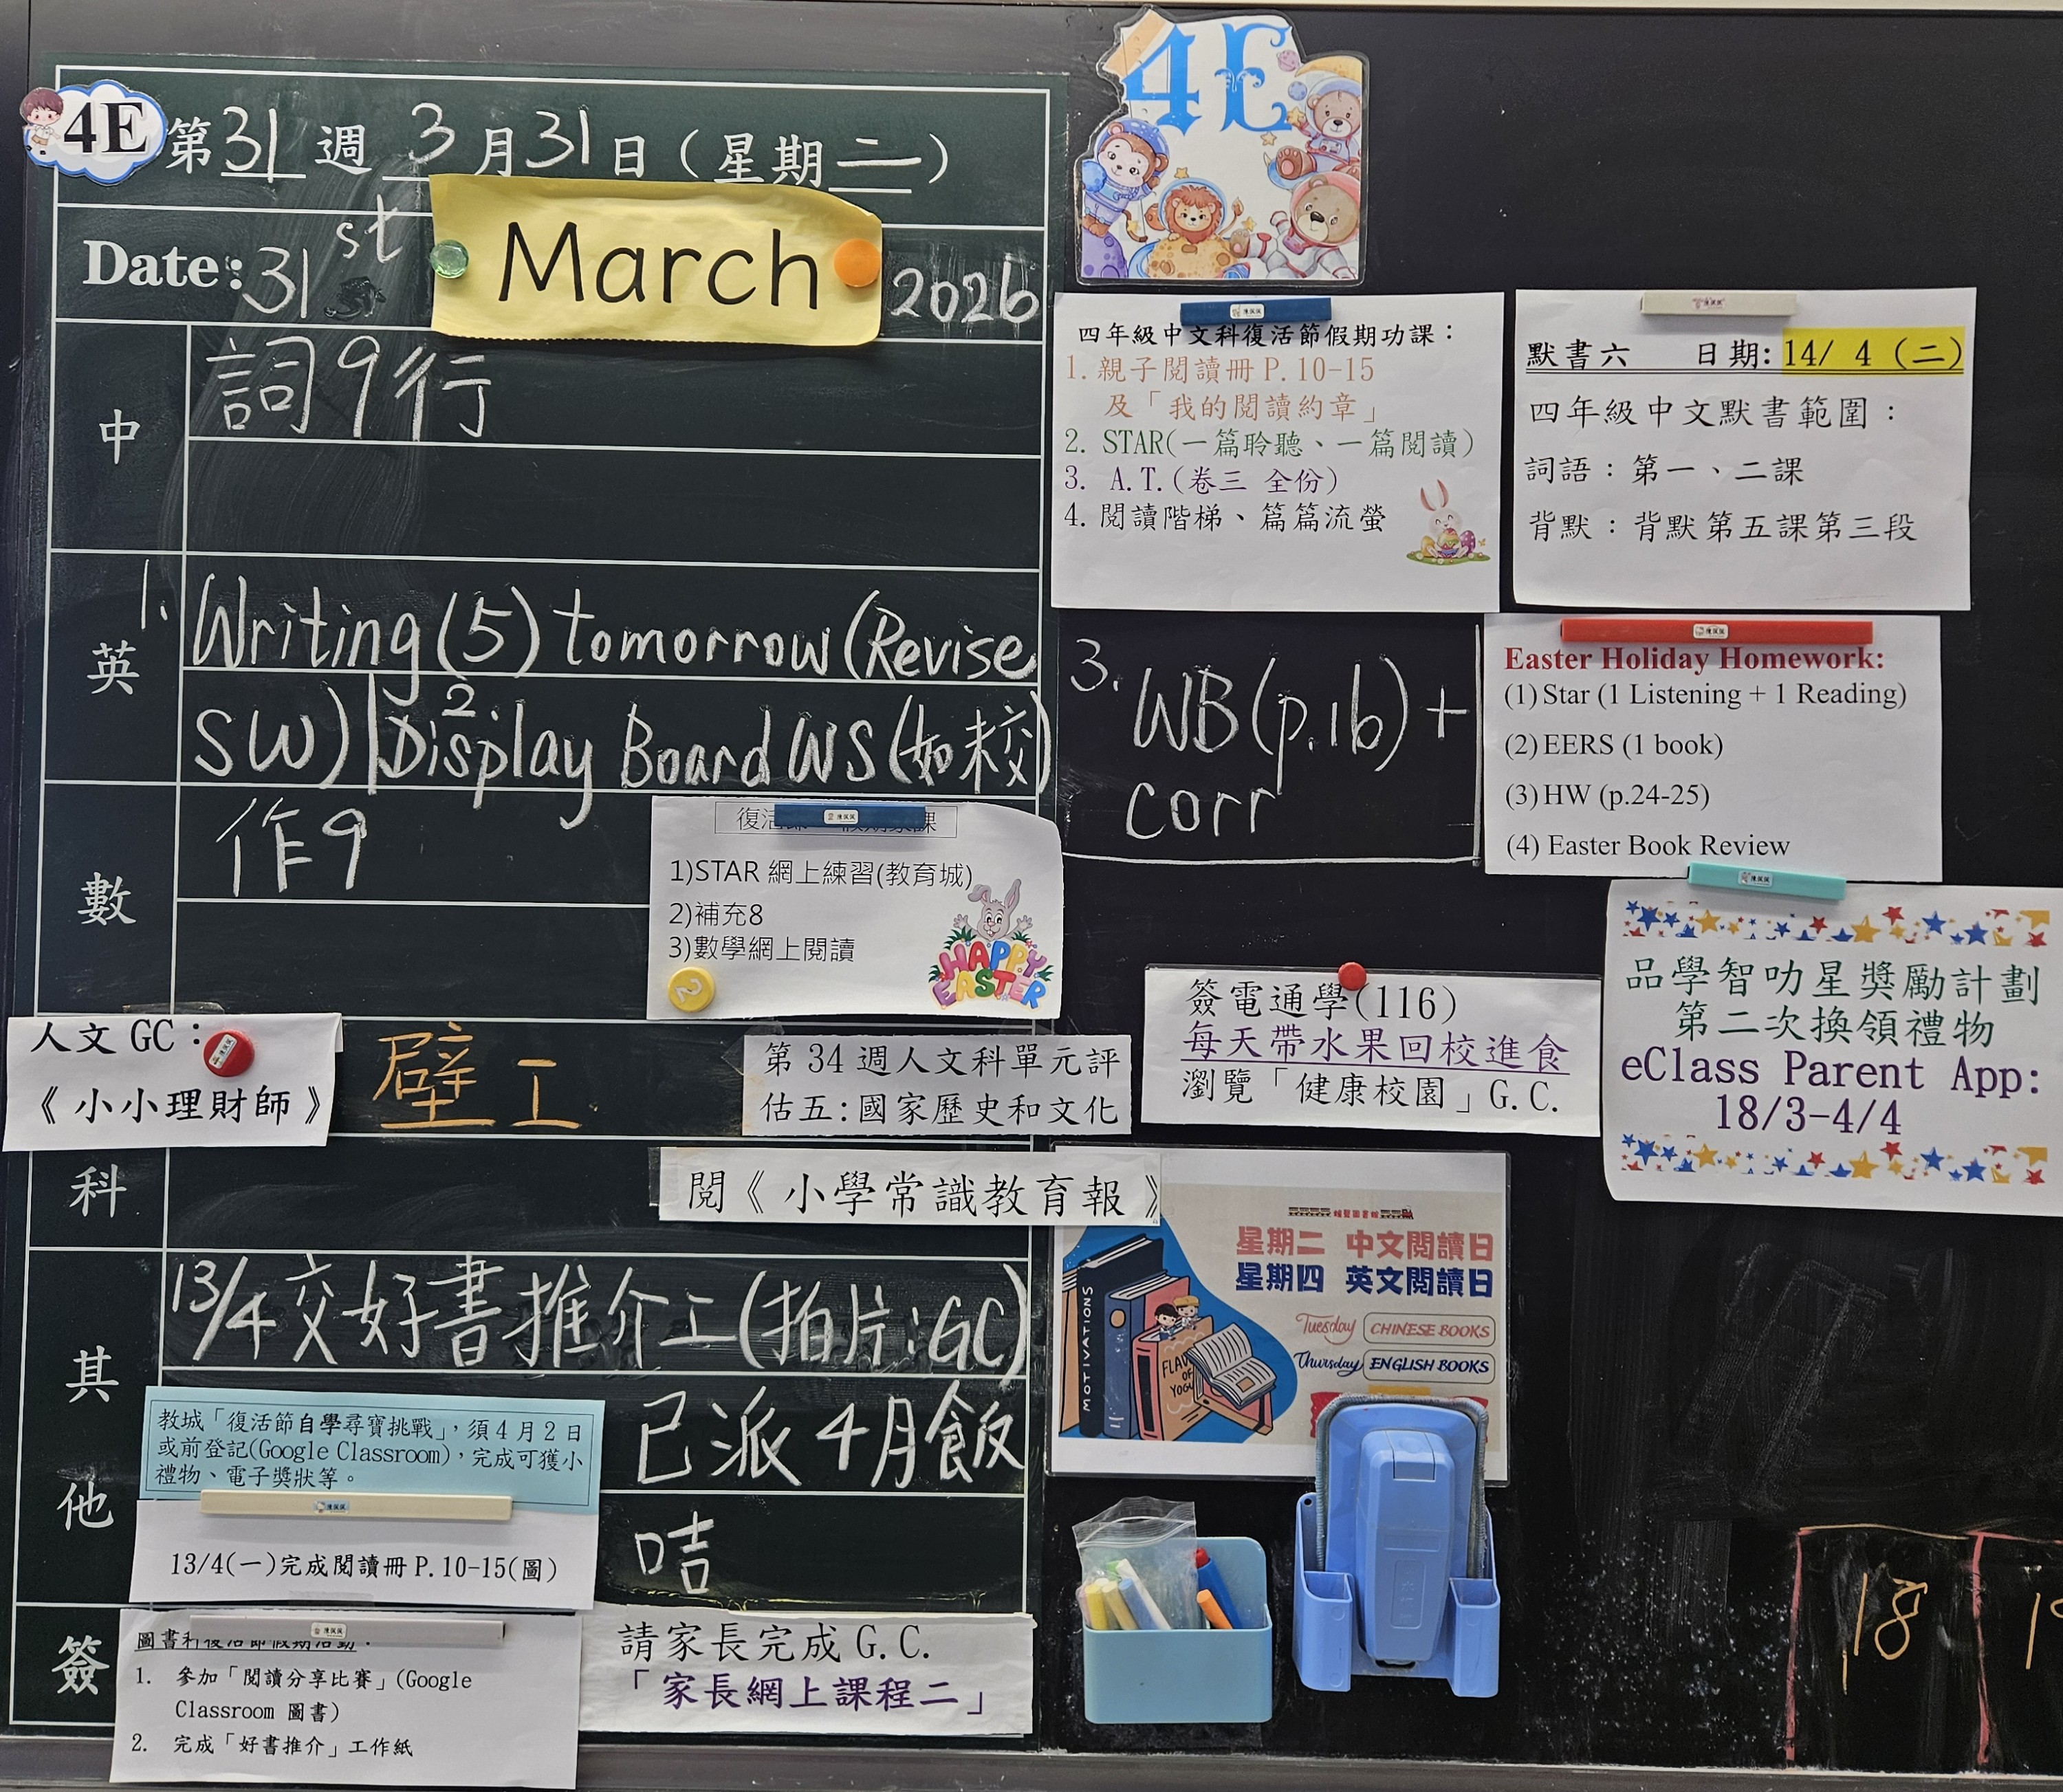 4E
第31週 3月31日（星期二）
Date: 31st March 2026
中
詞9行
英
1. Writing (5) tomorrow (Revise
SW) 2. Display Board WS (如未交)
3. WB (p.16) +
corr
數
作9
1)STAR 網上練習(教育城)
2)補充8
3)數學網上閱讀
HAPPY
EASTER
2
人文 GC：
《小小理財師》
壁工
第 34 週人文科單元評
估五:國家歷史和文化
科
閱《小學常識教育報》
其他
13/4交好書推介工(拍片:GC)
已派4月飯
咭
教城「復活節自學尋寶挑戰」，須 4 月 2 日
或前登記(Google Classroom)，完成可獲小
禮物、電子獎狀等。
13/4(一)完成閱讀冊 P.10-15(圖)
簽
圖書科復活節假期活動：
1. 參加「閱讀分享比賽」(Google
Classroom 圖書)
2. 完成「好書推介」工作紙
請家長完成 G.C.
「家長網上課程二」
4E
四年級中文科復活節假期功課：
1. 親子閱讀冊 P.10-15
及「我的閱讀約章」
2. STAR(一篇聆聽、一篇閱讀)
3. A.T.(卷三 全份)
4. 閱讀階梯、篇篇流螢
默書六 日期: 14/ 4 (二)
四年級中文默書範圍：
詞語：第一、二課
背默：背默第五課第三段
Easter Holiday Homework:
(1) Star (1 Listening + 1 Reading)
(2) EERS (1 book)
(3) HW (p.24-25)
(4) Easter Book Review
簽電通學(116)
每天帶水果回校進食
瀏覽「健康校園」G.C.
品學智叻星獎勵計劃
第二次換領禮物
eClass Parent App:
18/3-4/4
星期二 中文閱讀日
星期四 英文閱讀日
Tuesday CHINESE BOOKS
Thursday ENGLISH BOOKS
MOTIVATIONS
18